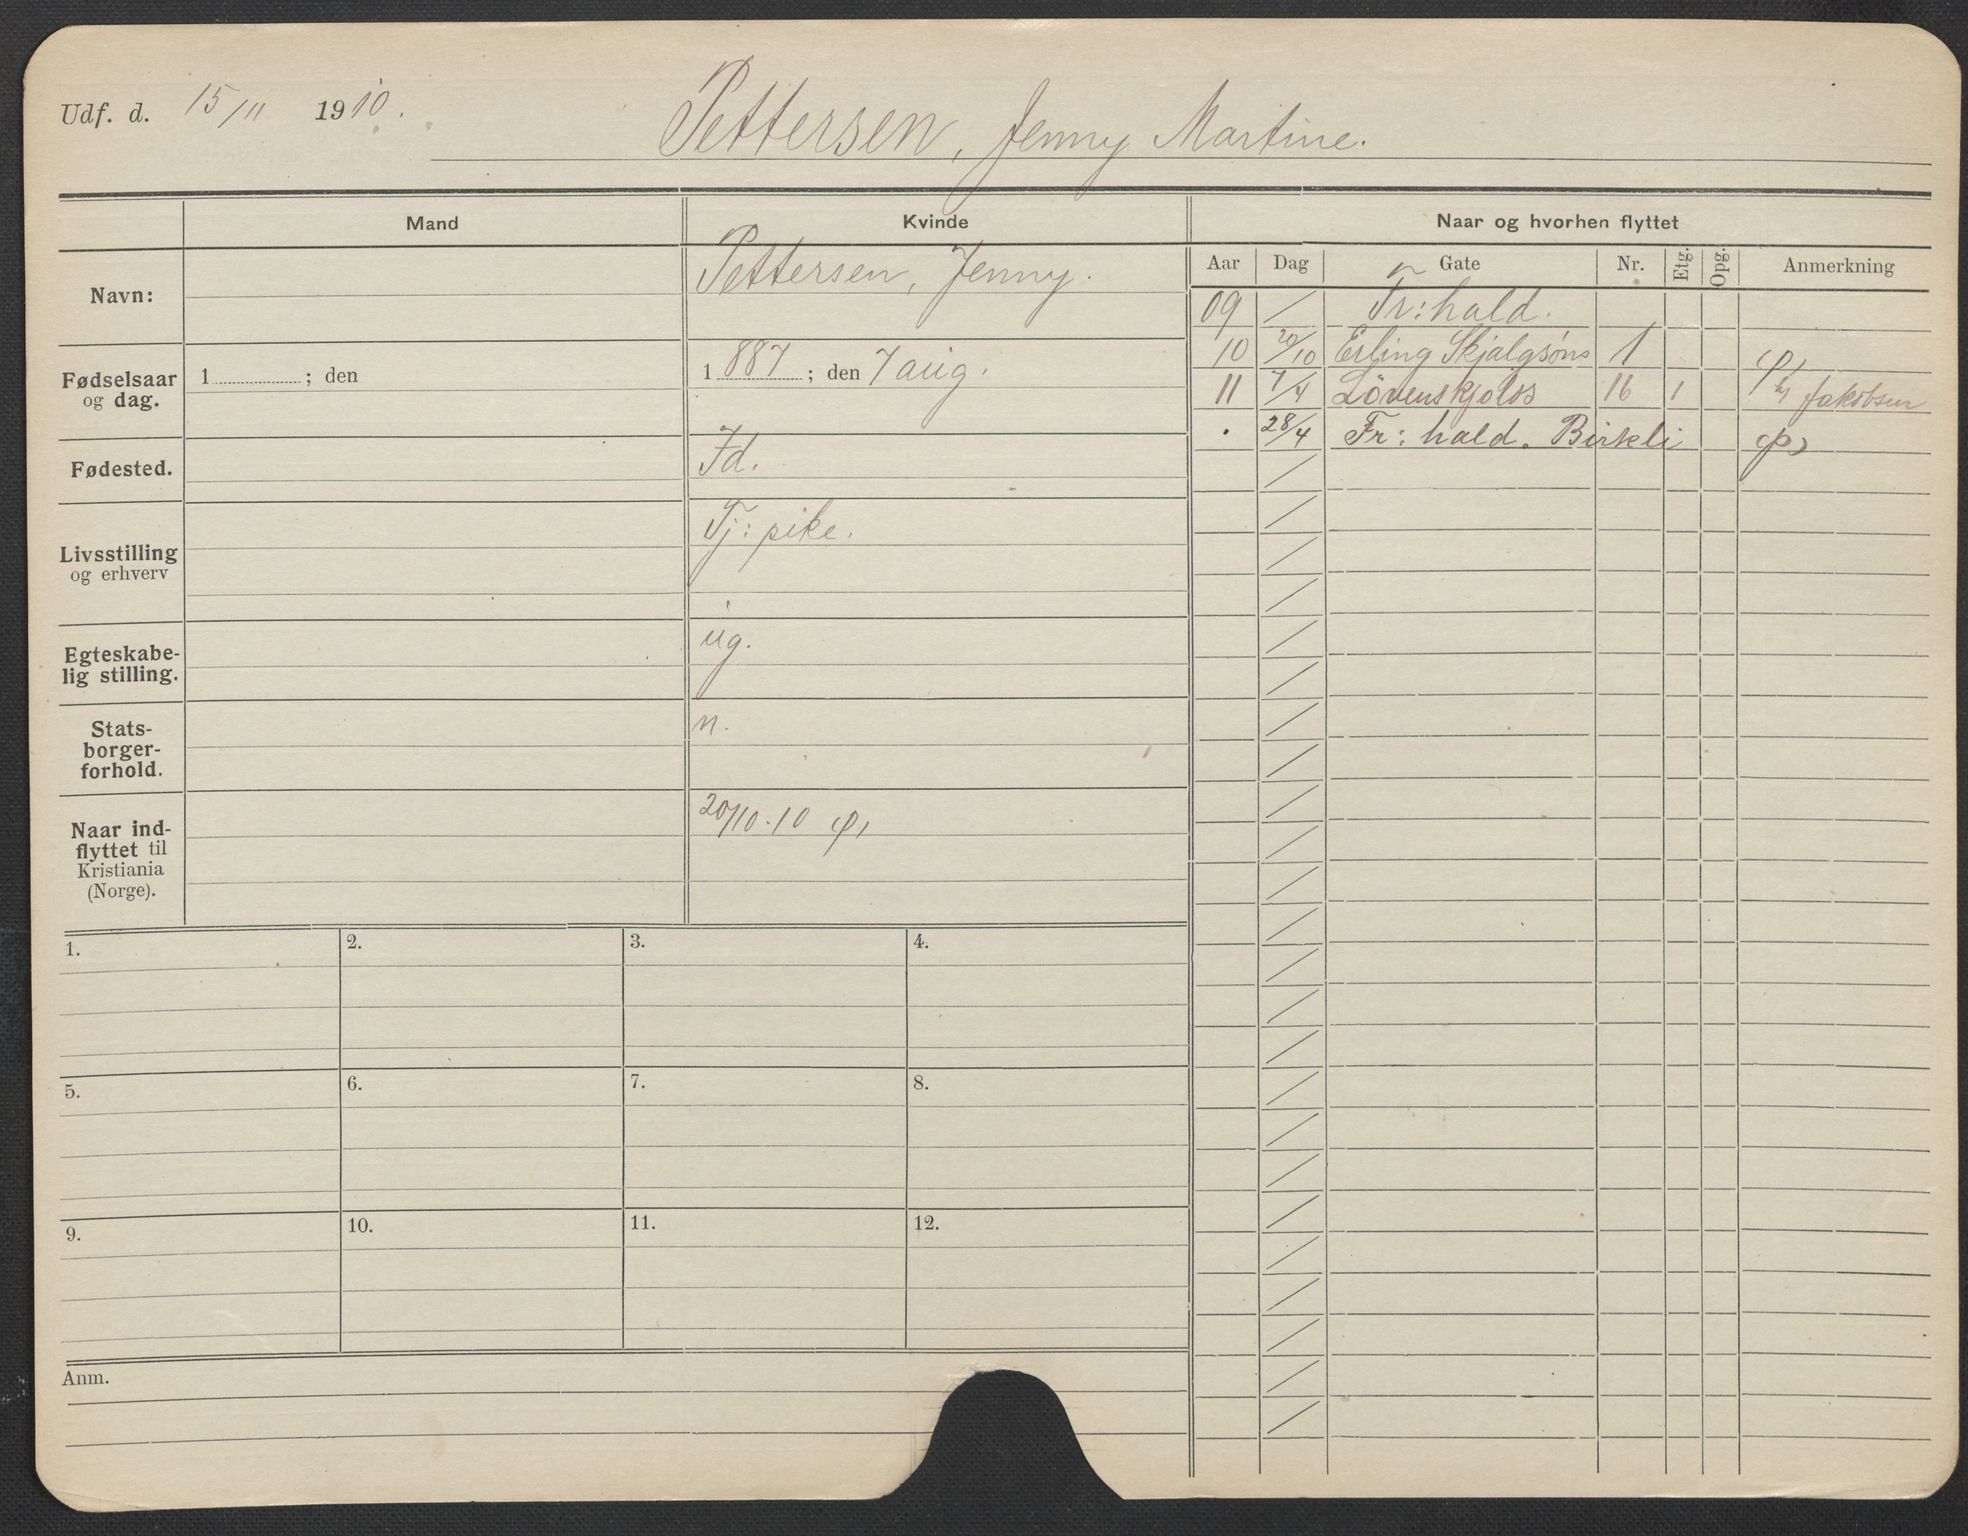 Udf. d. 15/11 1910.
Pettersen, Jenny Martine.
Mand
Kvinde
Naar og hvorhen flyttet
Navn:
Pettersen, Jenny.
Fødselsaar og dag.
1 ; den
1887 ; den 7 aug.
Fødested.
Id.
Livsstilling og erhverv
Tj: pike.
Egteskabe-
lig stilling.
ug.
Stats-
borger-
forhold.
n.
Naar ind-
flyttet til
Kristiania
(Norge).
20/10.10
Aar Dag Gate Nr. Etg. Opg. Anmerkning
09 / Fr: hald.
10 20/10 Erling Skjalgsøns 1
11 7/4 Lövenskjolds 16 1 Jakobsen
. 28/4 Fr: hald. Birkli
1. 2. 3. 4.
5. 6. 7. 8.
9. 10. 11. 12.
Anm.